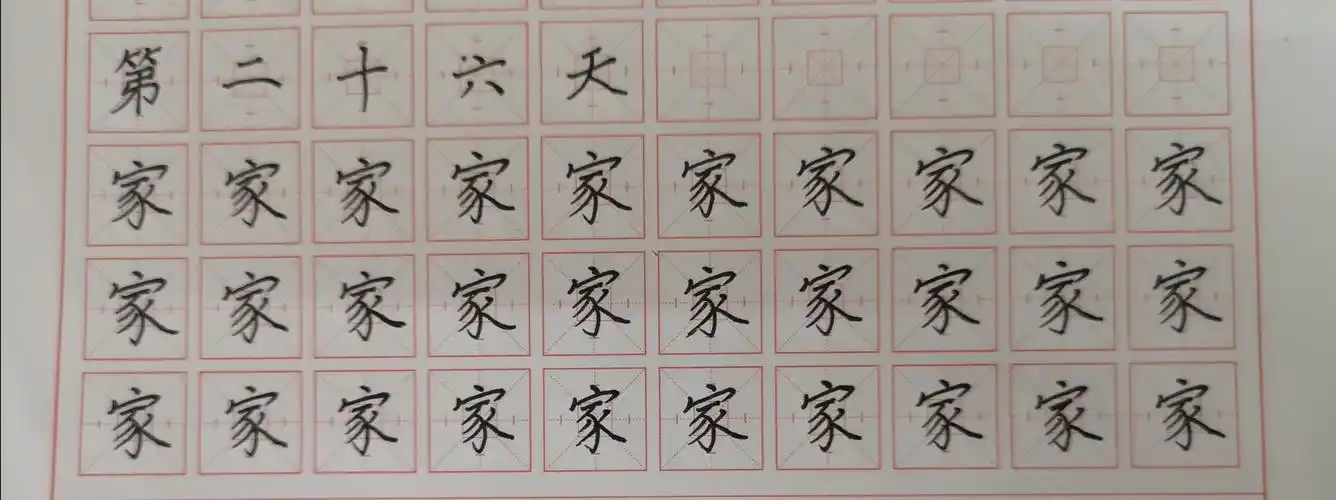 第二十六天
家家家家家家家家家家
家家家家家家家家家家
家家家家家家家家家家